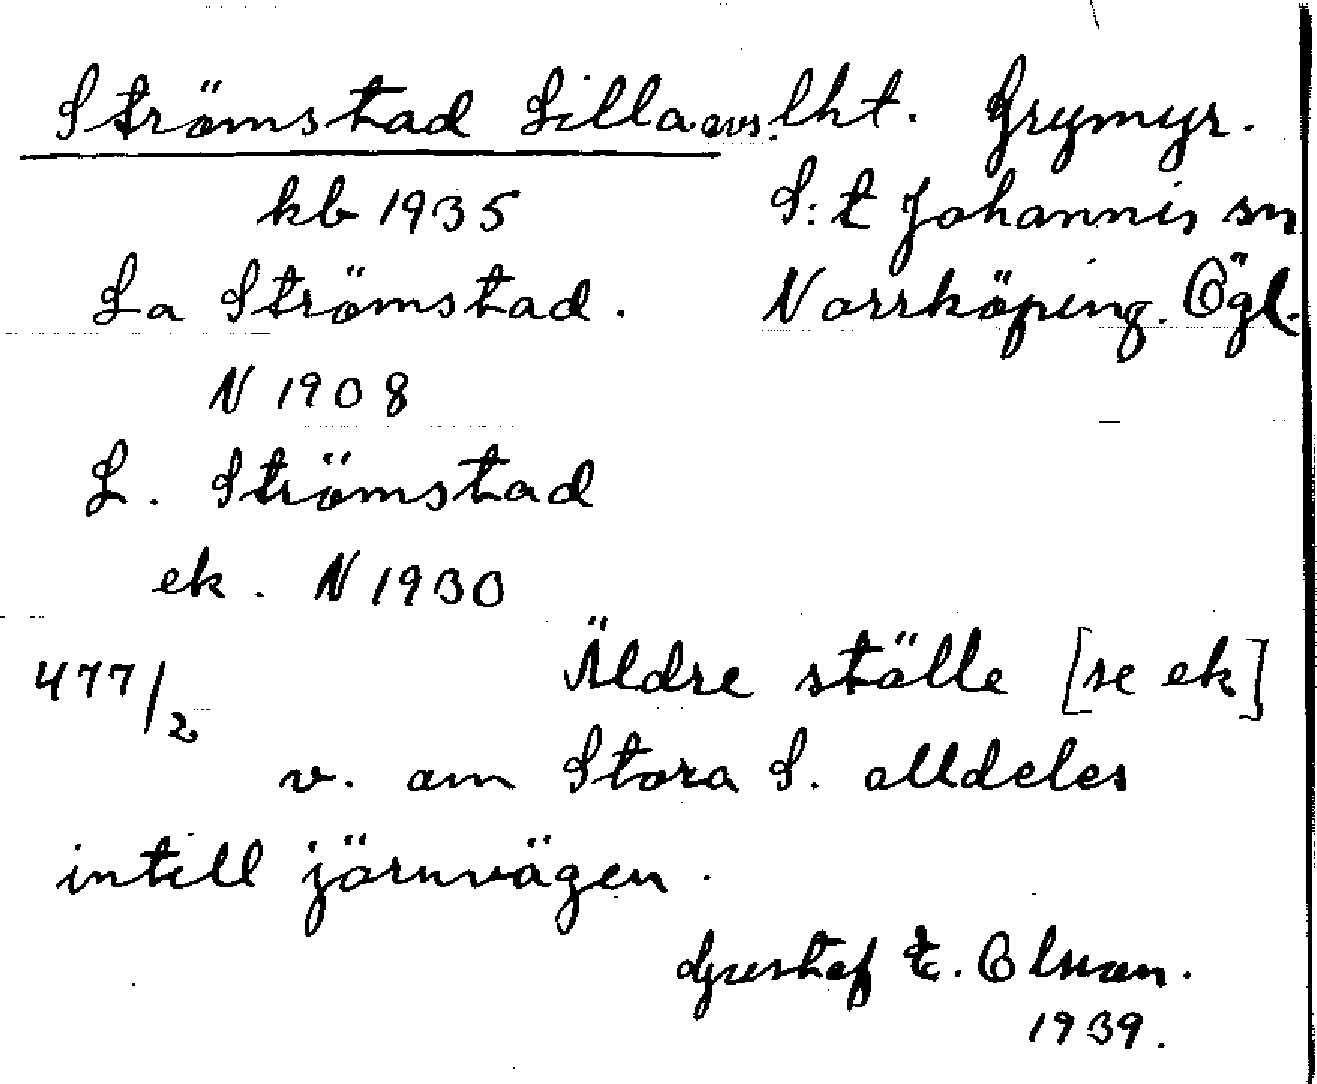 Strömstad Lilla avs. lht. Grymyr.
kb 1935 S:t Johannis sn
La Strömstad. Norrköping. Ögl.
N 1908
L. Strömstad
ek. N 1930
477/2 Äldre ställe [se ek]
v. om Stora S. alldeles
intill järnvägen.
Gustaf E. Olson.
1939.